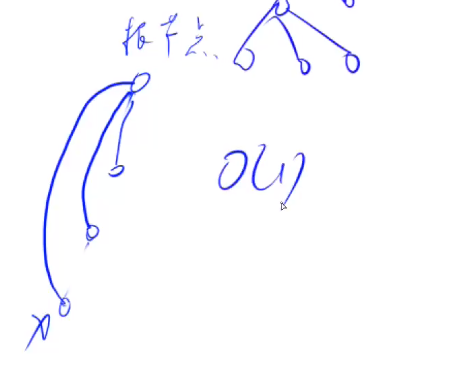 根节点
O(1)
x